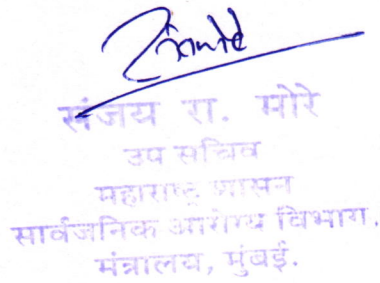 संजय रा. मोरे
उप सचिव
महाराष्ट्र शासन
सार्वजनिक आरोग्य विभाग.
मंत्रालय, मुंबई.